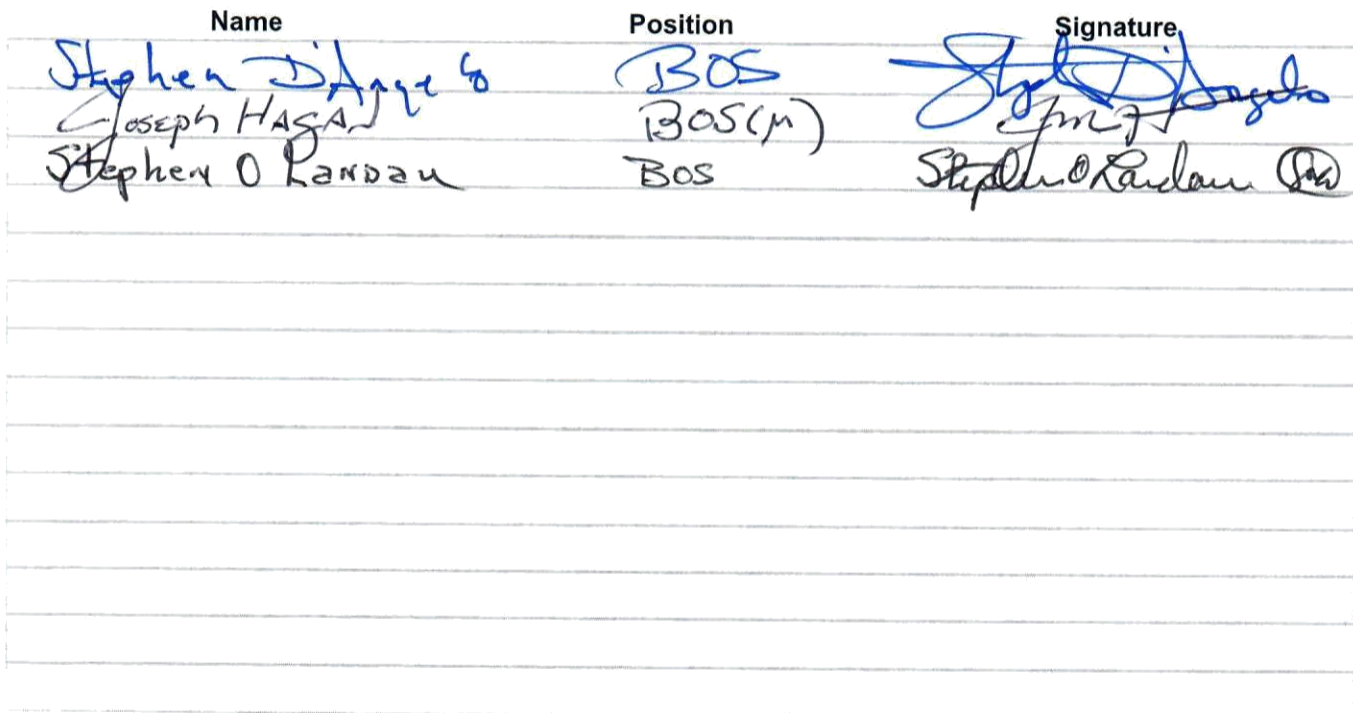 Name Position Signature
Stephen D'Angelo BOS Stephen D'Angelo
Joseph HAGAN BOS(M)
Stephen O Landau BOS Stephen O Landau